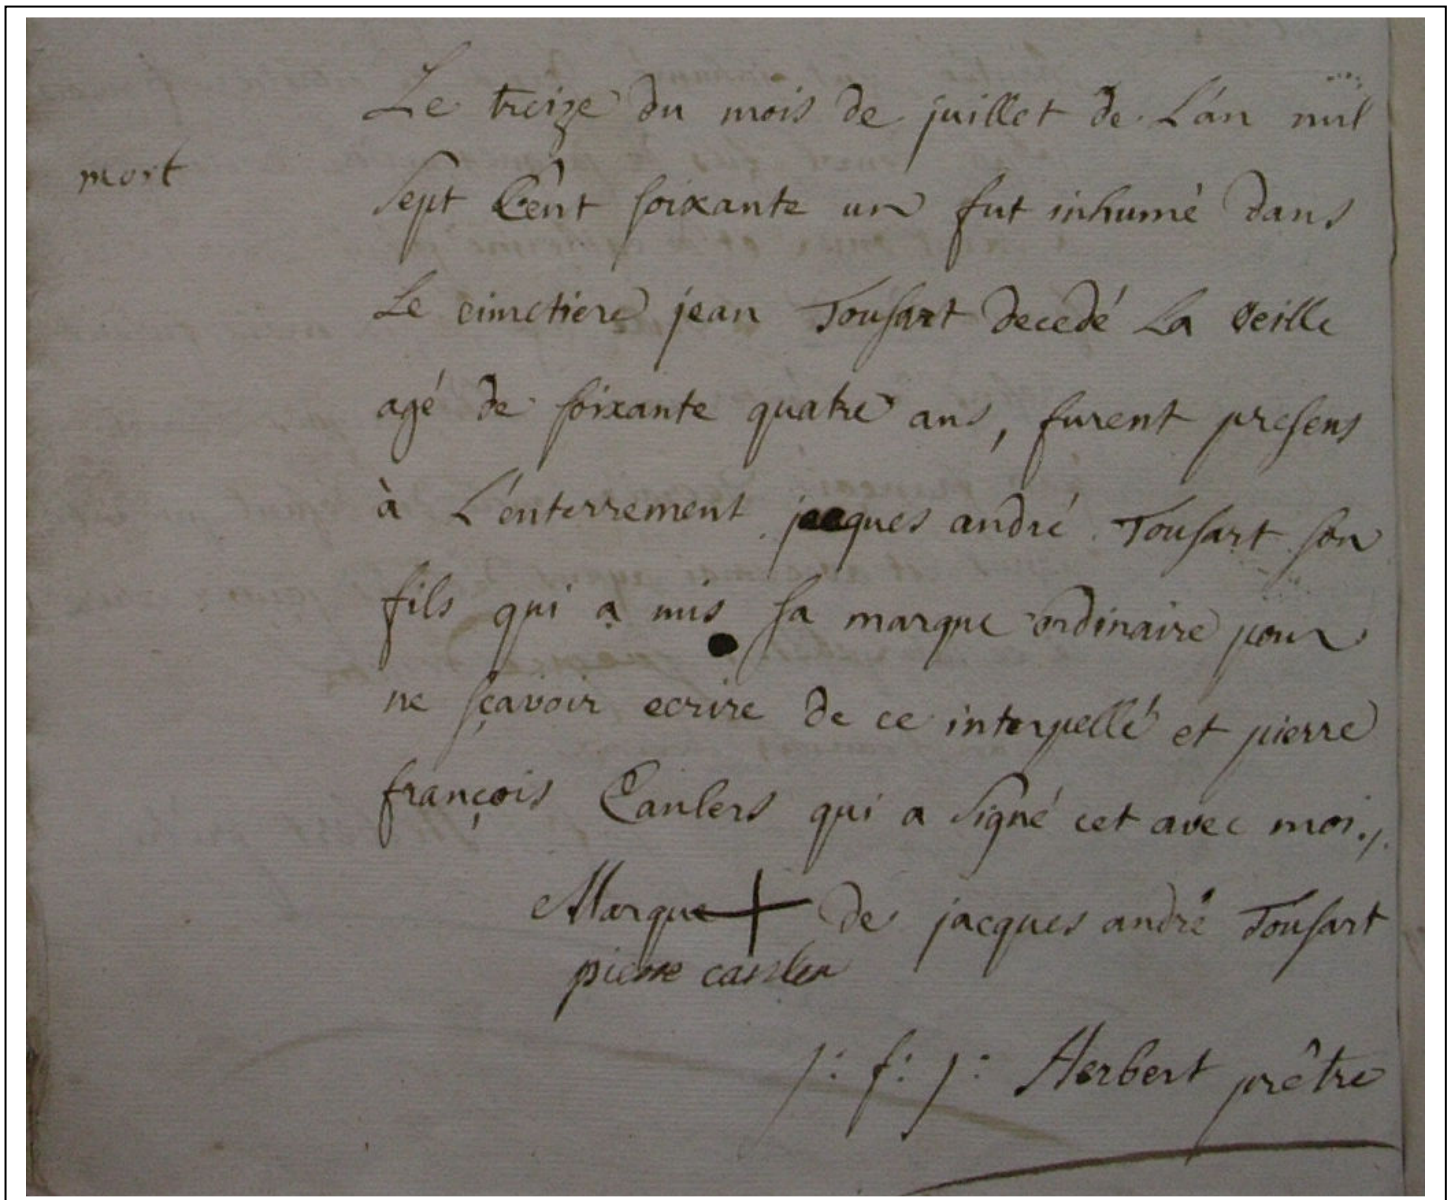 Le treize du mois de juillet de L'an mil
mort
sept Cent soixante un fut inhumé dans
Le cimetiere jean Tousart decedé La veille
agé de soixante quatre ans, furent presens
à L'enterrement jacques andré Tousart son
fils qui a mis sa marque ordinaire pour
ne sçavoir ecrire de ce interpellé et pierre
françois Canlers qui a signé cet avec moi./.
Marque + de jacques andré Tousart
pierre canler
j: f: j: Herbert prêtre